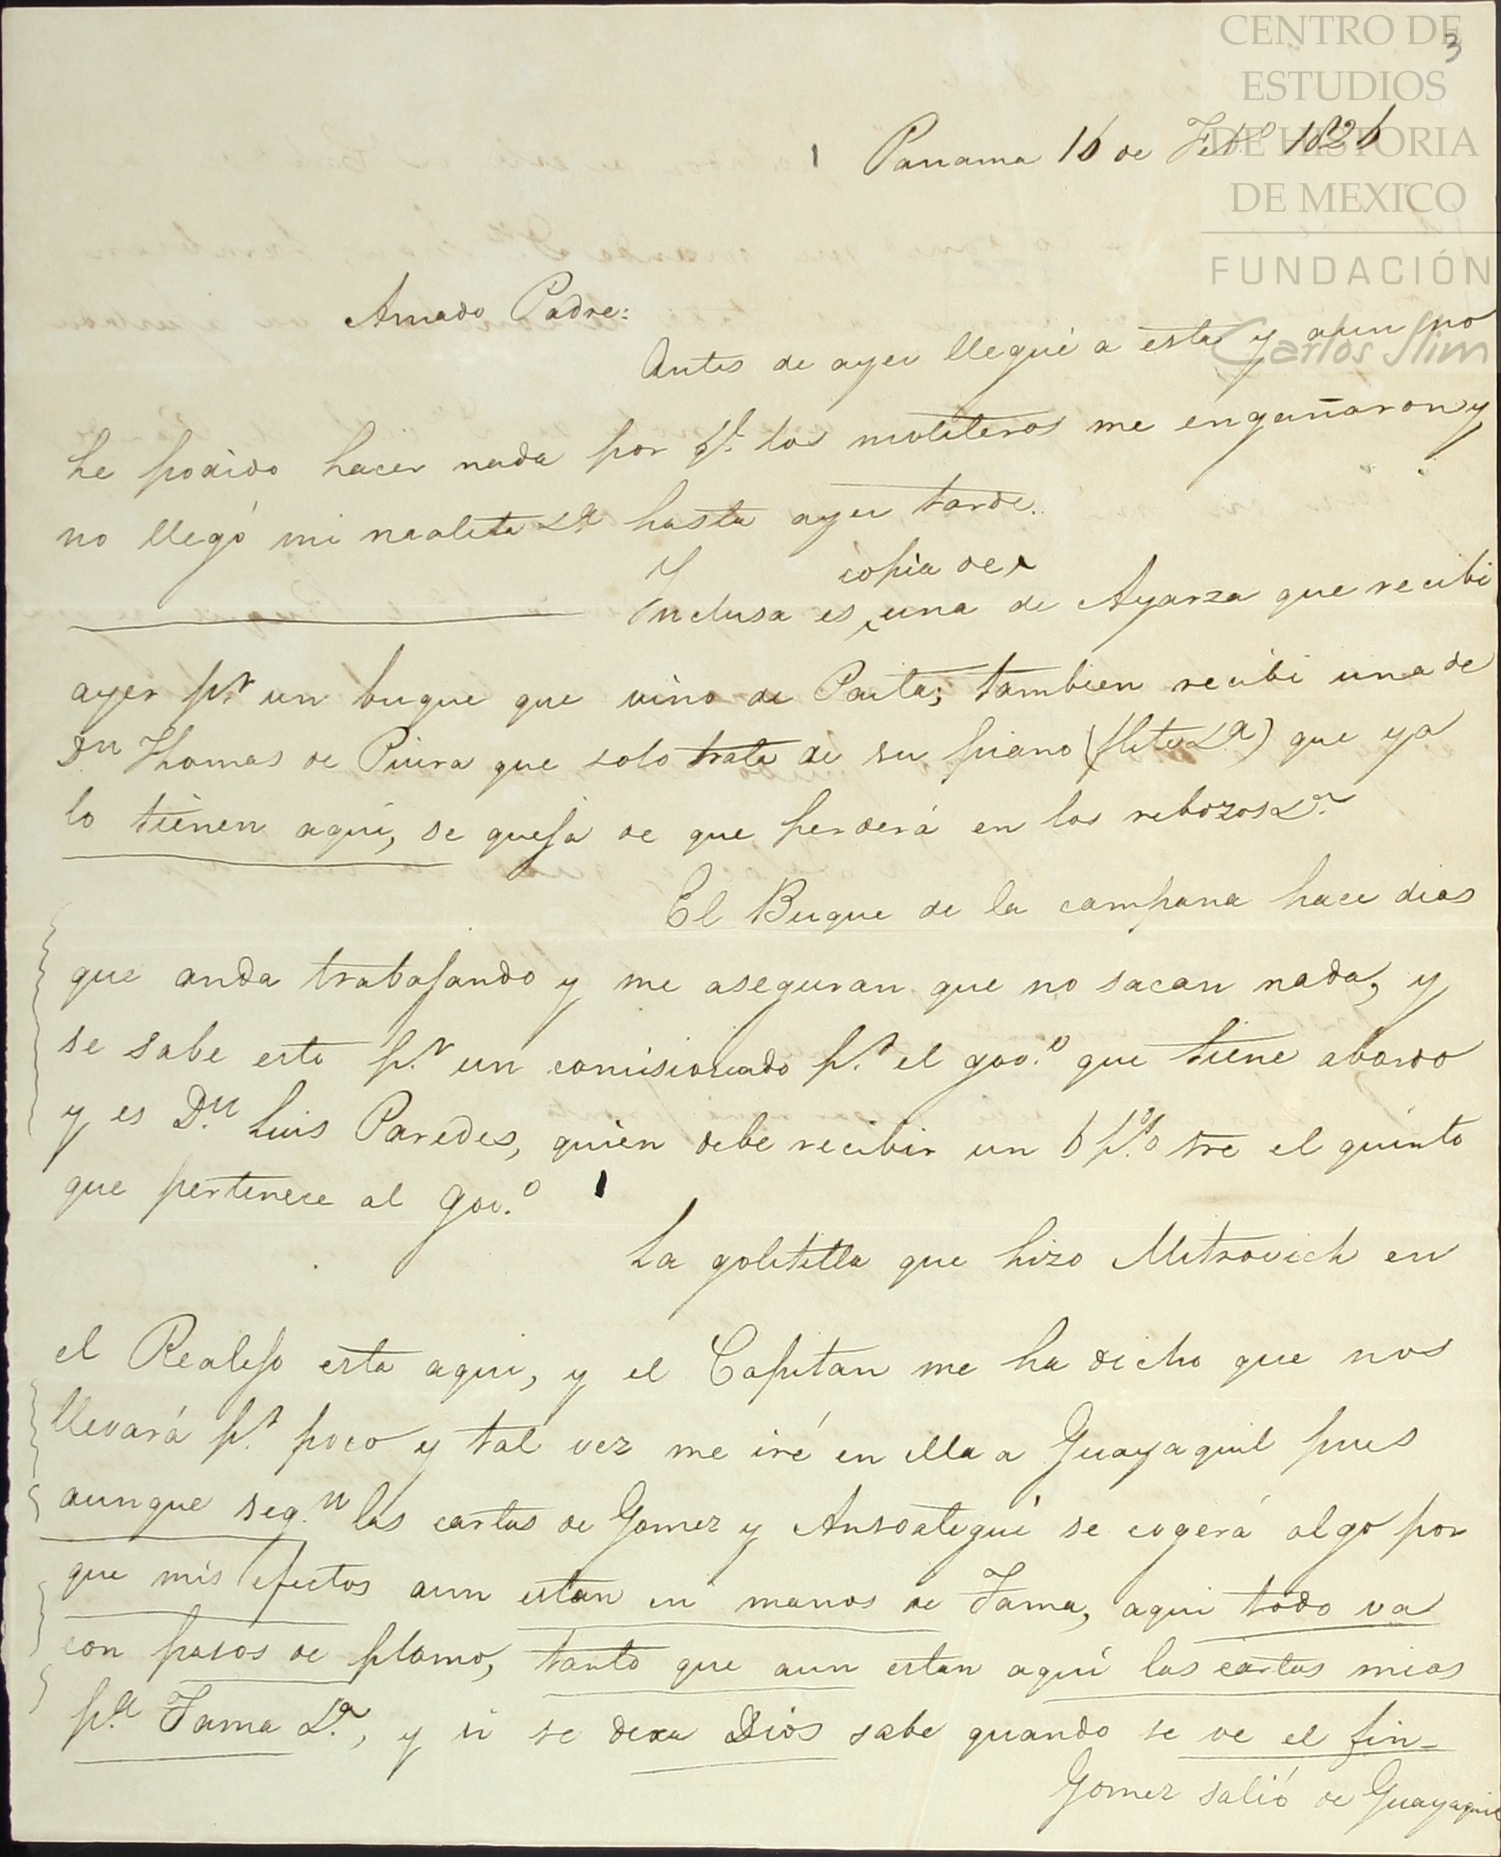 CENTRO DE
ESTUDIOS
DE HISTORIA
DE MEXICO
FUNDACIÓN
Carlos Slim
3
Panama 16 de Feb.o 1826
Amado Padre:
Antes de ayer llegué a esta y aun no
he podido hacer nada por q.e los muleteros me engañaron y
no llegó mi maleta &.a hasta ayer tarde.
copia de
Inclusa es una de Ayarza que recibi
ayer p.r un buque que vino de Paita; tambien recibi una de
D.n Thomas de Piura que solo trata de su piano (flete &.a) que ya
lo tienen aqui, se queja de que perderá en los rebozos &.a
El Buque de la campana hace dias
que anda trabajando y me aseguran que no sacan nada, y
se sabe esto p.r un comisionado p.r el gov.o que tiene abordo
y es D.n Luis Paredes, quien debe recibir un 6 p.% sre el quinto
que pertenece al Gov.o
La goletilla que hizo Mitrovich en
el Realejo esta aqui, y el Capitan me ha dicho que nos
llevará p.r poco y tal vez me iré en ella a Guayaquil pues
aunque seg.n las cartas de Gomez y Ansoategui se cogerá algo por
que mis efectos aun estan en manos de Jama, aqui todo va
con pasos de plomo, tanto que aun estan aqui las cartas mias
p.a Jama &.a, y si se dexa Dios sabe quando se ve el fin_
Gomez salió de Guayaquil